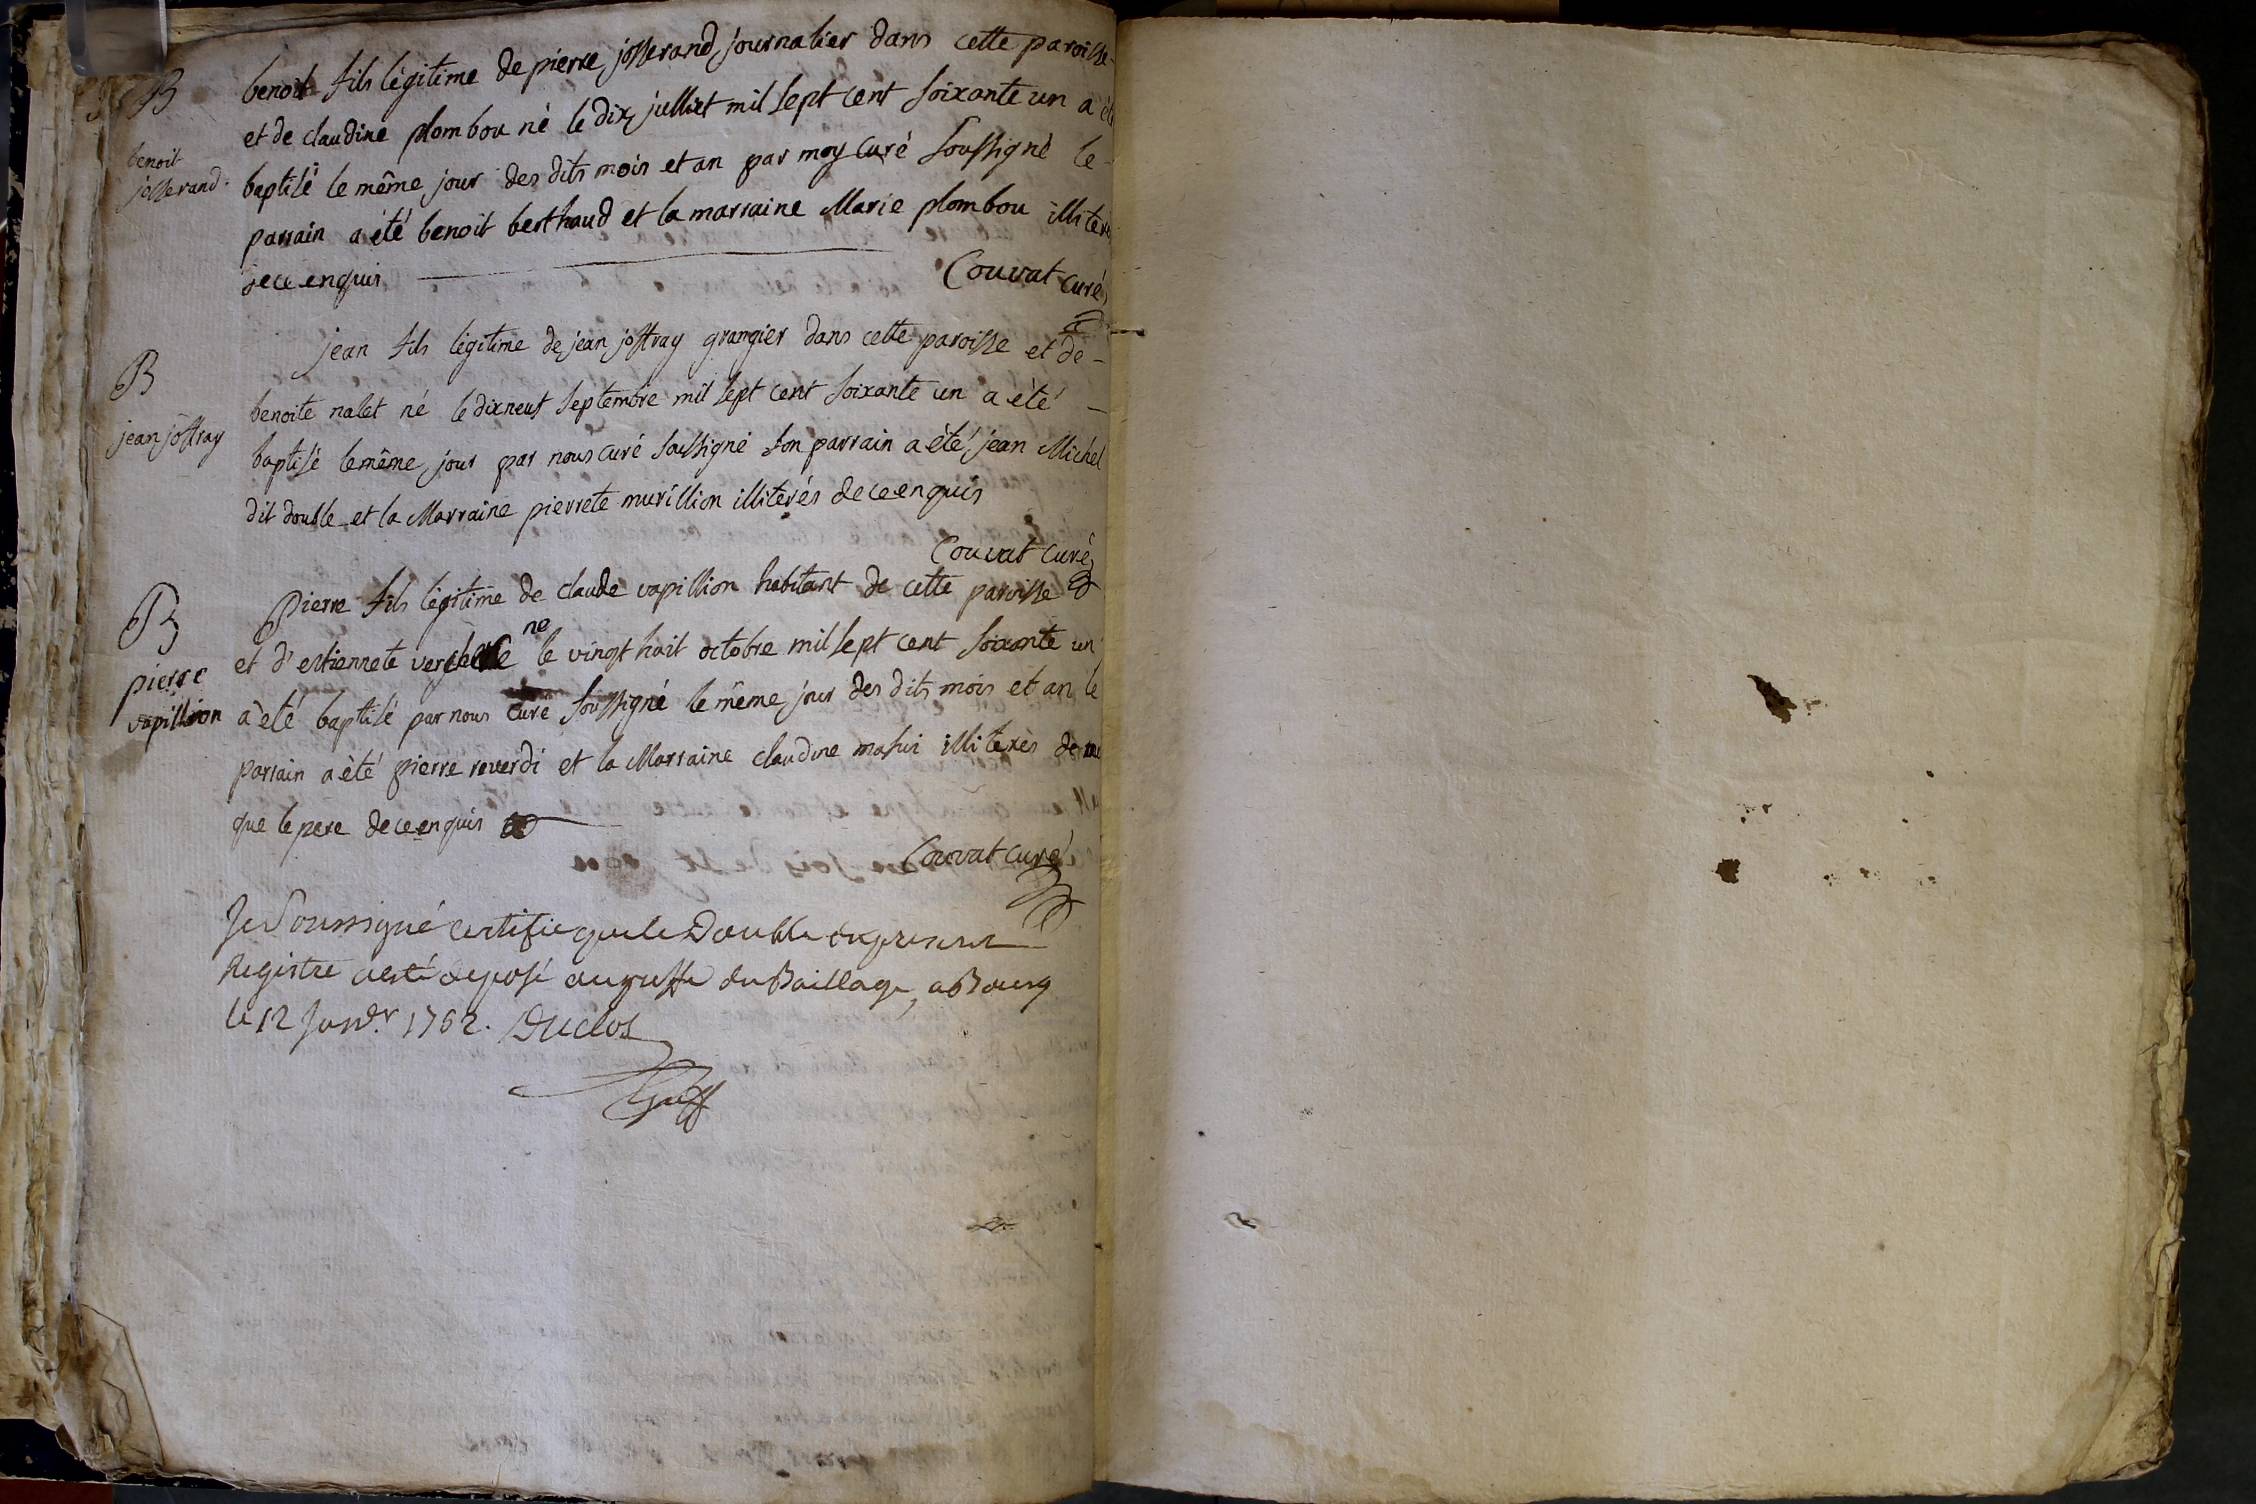 B
benoit
josserand.
benoit fils légitime de pierre josserand journalier dans cette paroisse-
et de claudine plombou né le dix julliet mil sept cent soixante un a été
baptisé le même jour des dits mois et an par moy curé soussigné le-
parrain a été benoit berthaud et la marraine Marie plombou illiterés
de ce enquis
Couvat curé
B
jean joffray
jean fils légitime de jean joffray grangier dans cette paroisse et de -
benoite nalet né le dixneuf septembre mil sept cent soixante un a été -
baptisé le même jour par nous curé soussigné son parrain a été jean Michel
dit double et la Marraine pierrete murillion illiterés de ce enquis
Couvat curé
B
pierre
vapillion
Pierre fils légitime de claude vapillion habitant de cette paroisse
et d'estiennete né le vingt huit octobre mil sept cent soixante un
a été baptisé par nous curé soussigné le même jour des dits mois et an le
parrain a été pierre reverdi et la Marraine claudine illiterés de me
que le pere de ce enquis
Couvat curé
Je Soussigné certifie que le Double du present
Registre a esté deposé au greffe du Baillage, a Bourg
le 12 Janv.r 1762. Duclos
Greff